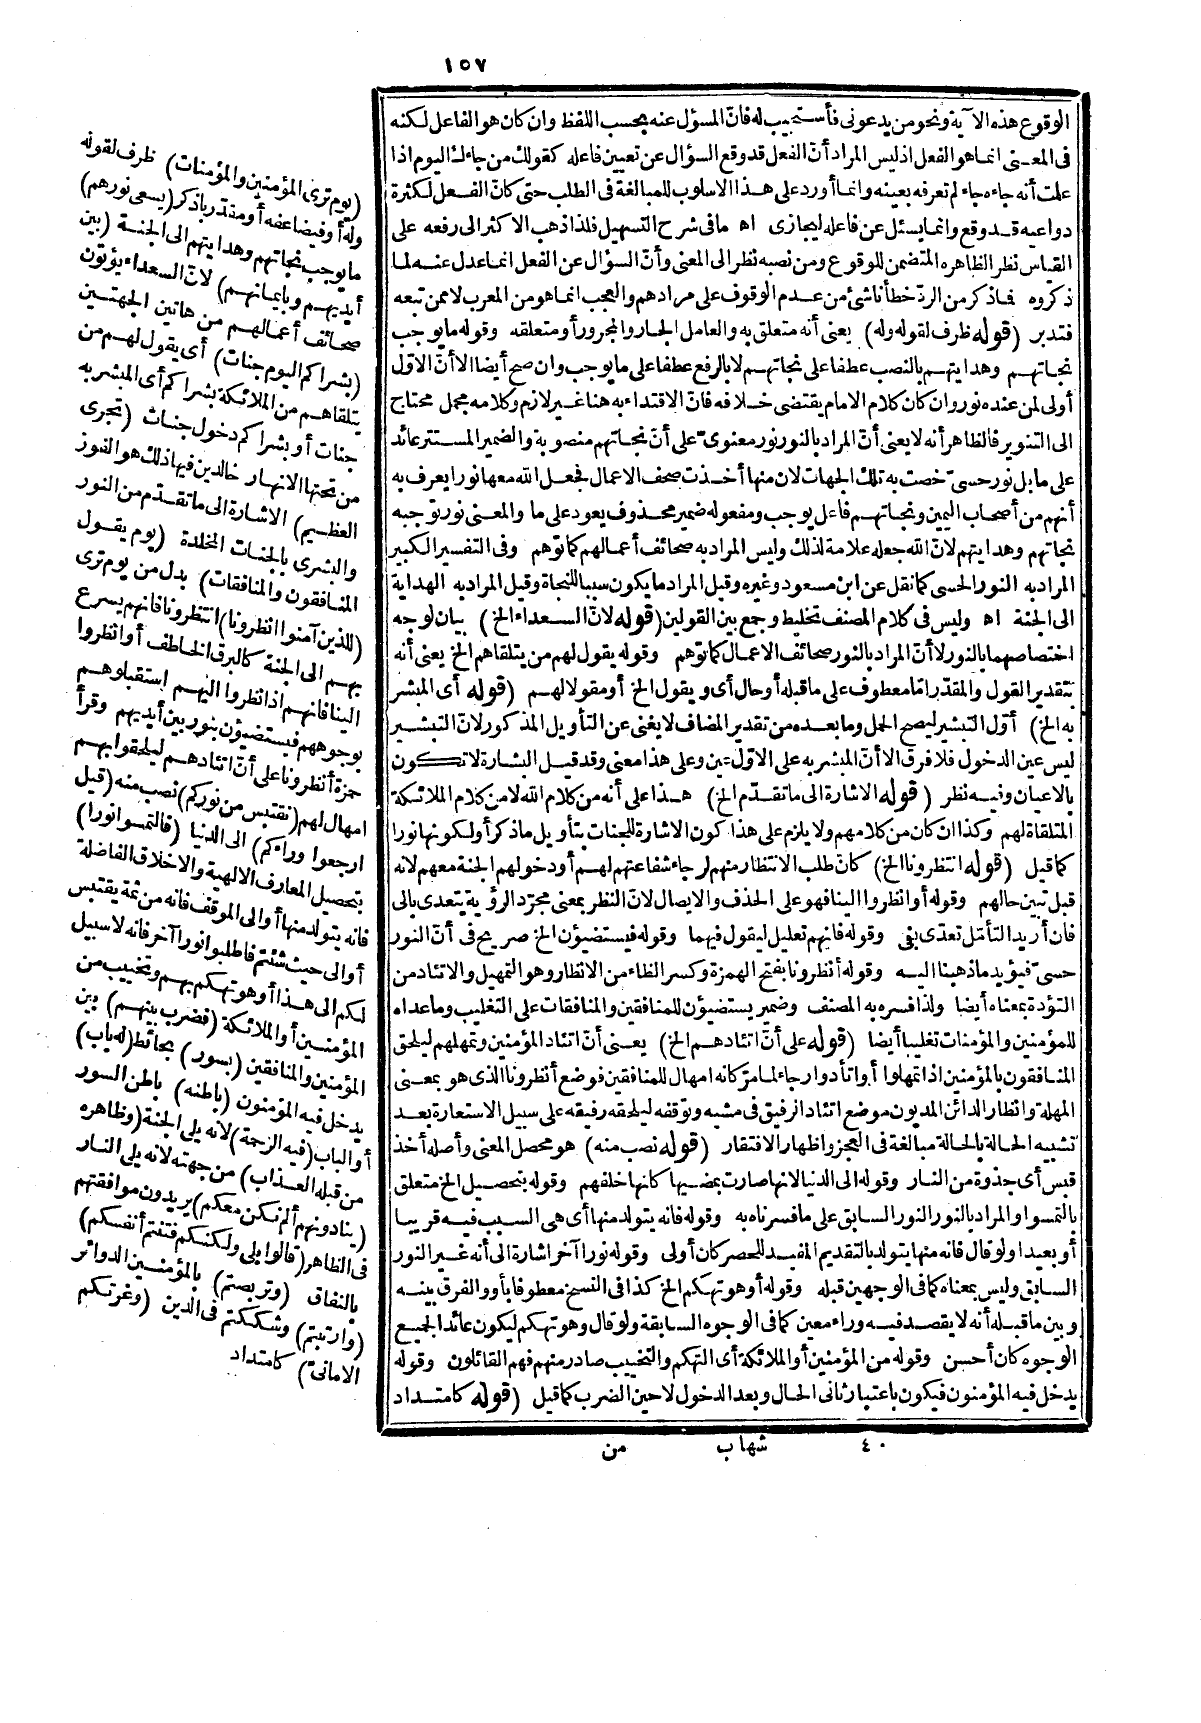 ١٥٧
الوقوع هذه الآية ونحو من يدعونى فأستجيب له فانّ المسؤل عنه بحسب اللفظ وان كان هو الفاعل لكنه
فى المعنى انما هو الفعل اذ ليس المراد أنّ الفعل قد وقع السؤال عن تعيين فاعله كقولك من جاءك اليوم اذا
علمت أنه جاءه جاء لم تعرفه بعينه وانما أورد على هذا الاسلوب للمبالغة فى الطلب حتى كانّ الفعل لكثرة
دواعيه قد وقع وانما يسئل عن فاعله ليجازى اه ما فى شرح التسهيل فلذا ذهب الاكثر الى رفعه على
القياس نظر الظاهره المتضمن للوقوع ومن نصبه نظر الى المعنى وأنّ السؤال عن الفعل انما عدل عنه لما
ذكروه فما ذكر من الردّ خطأ ناشئ من عدم الوقوف على مرادهم والعجب انما هو من المعرب لا ممن تبعه
فتدبر (قوله ظرف لقوله وله) يعنى أنه متعلق به والعامل الجار والمجرور أو متعلقه وقوله ما يوجب
نجاتهم وهدايتهم بالنصب عطفا على نجاتهم لا بالرفع عطفا على ما يوجب وان صح أيضا الا أنّ الاوّل
أولى لمن عنده نور وان كان كلام الامام يقتضى خلافه فانّ الاقتداء به هنا غير لازم وكلامه مجمل محتاج
الى التنوير فالظاهر أنه لا يعنى أنّ المراد بالنور نور معنوىّ على أنّ نجاتهم منصوبة والضمير المستتر عائد
على ما بل نور حسىّ خصت به تلك الجهات لان منها أخذت صحف الاعمال فجعل الله معها نورا يعرف به
أنهم من أصحاب اليمين ونجاتهم فاعل يوجب ومفعوله ضمير محذوف يعود على ما والمعنى نور توجبه
نجاتهم وهدايتهم لانّ الله جعله علامة لذلك وليس المراد به صحائف أعمالهم كما توهم وفى التفسير الكبير
المراد به النور الحسى كما نقل عن ابن مسعود وغيره وقيل المراد ما يكون سببا للنجاة وقيل المراد به الهداية
الى الجنة اه وليس فى كلام المصنف تخليط وجمع بين القولين (قوله لانّ السعداء الخ) بيان لوجه
اختصاصهما بالنور لا أنّ المراد بالنور صحائف الاعمال كما توهم وقوله يقول لهم من يتلقاهم الخ يعنى أنه
بتقدير القول والمقدّر امّا معطوف على ما قبله أو حال أى ويقول الخ أو مقولا لهم (قوله أى المبشر
به الخ) أوّل التبشير ليصح الحمل وما بعده من تقدير المضاف لا يغنى عن التأويل المذكور لانّ التبشير
ليس عين الدخول فلا فرق الا أنّ المبشر به على الاوّل عين وعلى هذا معنى وقد قيل البشارة لا تكون
بالاعيان وفيه نظر (قوله الاشارة الى ما تقدّم الخ) هذا على أنه من كلام الله لا من كلام الملائكة
المتلقاة لهم وكذا ان كان من كلامهم ولا يلزم على هذا كون الاشارة للجنات بتأويل ما ذكر أو لكونها نورا
كما قيل (قوله انتظرونا الخ) كانّ طلب الانتظار منهم لرجاء شفاعتهم لهم أو دخولهم الجنة معهم لانه
قبل تبين حالهم وقوله أو انظروا الينا فهو على الحذف والايصال لانّ النظر بمعنى مجرّد الرؤية يتعدى بالى
فان أريد التأمّل تعدّى بفى وقوله فانهم تعليل ليقول فيهما وقوله فيستضيؤن الخ صريح فى أنّ النور
حسىّ فيؤيد ما ذهبنا اليه وقوله أنظرونا بفتح الهمزة وكسر الظاء من الانظار وهو التمهيل والاتئاد من
التؤدة بمعناه أيضا ولذا فسره به المصنف وضمير يستضيؤن للمنافقين والمنافقات على التغليب وما عداه
للمؤمنين والمؤمنات تغليبا أيضا (قوله على أنّ اتئادهم الخ) يعنى أنّ اتئاد المؤمنين وتمهلهم ليلحق
المنافقون بالمؤمنين اذا تمهلوا أو اتأدوا رجاء لما مرّ كانه امهال للمنافقين فوضع أنظرونا الذى هو بمعنى
المهلة وانظار الدائن المديون موضع اتئاد الرفيق فى مشيه وتوقفه ليلحقه رفيقه على سبيل الاستعارة بعد
تشبيه الحالة بالحالة مبالغة فى العجز واظهار الافتقار (قوله نصب منه) هو محصل المعنى وأصله أخذ
قبس أى جذوة من النار وقوله الى الدنيا لانها صارت بمضيها كانها خلفهم وقوله بتحصيل الخ متعلق
بالتمسوا والمراد بالنور النور السابق على ما فسرناه به وقوله فانه يتولد منها أى هى السبب فيه قريبا
أو بعيدا ولو قال فانه منها يتولد بالتقديم المفيد للحصر كان أولى وقوله نورا آخر اشارة الى أنه غير النور
السابق وليس بمعناه كما فى الوجهين قبله وقوله أو هو تهكم الخ كذا فى النسخ معطوفا بأو والفرق بينه
وبين ما قبله أنه لا يقصد فيه وراء معين كما فى الوجوه السابقة ولو قال وهو تهكم ليكون عائدا لجميع
الوجوه كان أحسن وقوله من المؤمنين أو الملائكة أى التهكم والتخييب صادر منهم فهم القائلون وقوله
يدخل فيه المؤمنون فيكون باعتبار ثانى الحال وبعد الدخول لا حين الضرب كما قيل (قوله كامتداد
(يوم ترى المؤمنين والمؤمنات) ظرف لقوله
وله أو فيضاعفه أو مقدر باذكر (يسعى نورهم)
ما يوجب نجاتهم وهدايتهم الى الجنة (بين
أيديهم وبايمانهم) لانّ السعداء يؤتون
صحائف أعمالهم من هاتين الجهتين
(بشراكم اليوم جنات) أى يقول لهم من
يتلقاهم من الملائكة بشراكم أى المبشر به
جنات أو بشراكم دخول جنات (تجرى
من تحتها الانهار خالدين فيها ذلك هو الفوز
العظيم) الاشارة الى ما تقدّم من النور
والبشرى بالجنات المخلدة (يوم يقول
المنافقون والمنافقات) بدل من يوم ترى
(للذين آمنوا انظرونا) انتظرونا فانهم يسرع
بهم الى الجنة كالبرق الخاطف أو انظروا
الينا فانهم اذا نظروا اليهم استقبلوهم
بوجوههم فيستضيؤن بنور بين أيديهم وقرأ
حمزة أنظرونا على أنّ اتئادهم ليلحقوا بهم
امهال لهم (نقتبس من نوركم) نصب منه (قيل
ارجعوا وراءكم) الى الدنيا (فالتمسوا نورا)
بتحصيل المعارف الالهية والاخلاق الفاضلة
فانه يتولد منها أو الى الموقف فانه من ثمة يقتبس
أو الى حيث شئتم فاطلبوا نورا آخر فانه لا سبيل
لكم الى هذا أو هو تهكم بهم وتخييب من
المؤمنين أو الملائكة (فضرب بينهم) بين
المؤمنين والمنافقين (بسور) بحائط (له باب)
يدخل فيه المؤمنون (باطنه) باطن السور
أو الباب (فيه الرحمة) لانه يلى الجنة (وظاهره
من قبله العذاب) من جهته لانه يلى النار
(ينادونهم ألم نكن معكم) يريدون موافقتهم
فى الظاهر (قالوا بلى ولكنكم فتنتم أنفسكم)
بالنفاق (وتربصتم) بالمؤمنين الدوائر
(وارتبتم) وشككتم فى الدين (وغرتكم
الامانىّ) كامتداد
٤٠ شهاب من